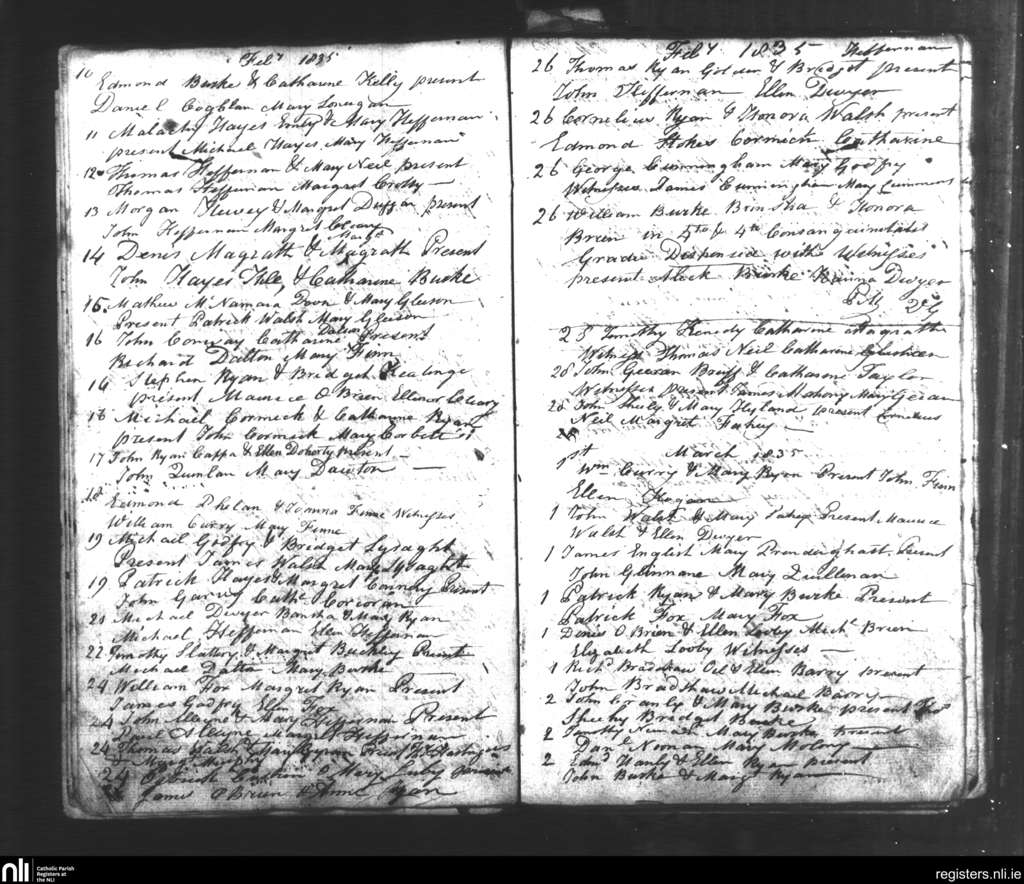 Feby 1835
10 Edmond Burke & Catharine Kelly present
Daniel Coghlan Mary Lonugan
11 Malachy Hayes Emly & Mary Heffernan
present Michael Hayes Mary Heffernan
12 Thomas Heffernan & Mary Neil present
Thomas Heffernan Margret Crosby
13 Morgan & Margret Duggan present
John Heffernan Margret Cleary
14 Denis Magrath & Margt Magrath Present
John Hayes & Catharine Burke
15 Mathew McNamara Doon & Mary Gleeson
Present Patrick Walsh Mary Gleeson
16 John Conway Catharine Dalton Present
Richard Dalton Mary Finn
16 Stephen Ryan & Bridget
present Maurice O Brien Ellinor Cleary
16 Michael Cormick & Catharine Ryan
present John Cormick Mary Corbett
17 John Ryan Cappa & Ellen Doherty present
John Quinlan Mary Dawson
18 Edmond Phelan & Joanna Finne Witnesses
William Curry Mary Finne
19 Michael Godfry & Bridget Lysaght
Present James Walsh Mary Lysaght
19 Patrick Hayes & Margret Present
John Garvey Cathe Corcoran
21 Michael Dwyer Bansha & Mary Ryan
Michael Heffernan Ellen Heffernan
22 Timothy Slattery & Margret Buckley Present
Michael Dalton Mary Burke
24 William Fox Margret Ryan Present
James Godfry Ellen Fox
24 John Sleyne & Mary Heffernan Present
David Sleyne Margret Heffernan
24 Thomas Walsh &
& Mary Murphy
24 Patrick & Mary present
James O Brien & Anne Ryan
Feby 1835 Heffernan
26 Thomas Ryan Golden & Bridget present
John Heffernan Ellen Dwyer
26 Cornelius Ryan & Honora Walsh present
Edmond Stokes Cormick Catharine
26 George Cunningham Mary Godfry
Witnesses James Cunningham Mary Cummens
26 William Burke Bansha & Honora
Brien in 4th Consanguinitatis
Gradu Dispensed with Witnesses
present Mick Burke Dwyer
28 Timothy Kenedy Catharine Magrath
Witness Thomas Neil Catharine
28 John Geeran & Catharine Taylor
Witnesses present James Mahony Mary Geean
28 John & Mary Hyland present Cornelius
Neil Margret Fahey
March 1835
1st Wm Curry & Mary Ryan Present John Finn
Ellen Hogan
1 John Walsh & Mary Fahey Present Maurice
Walsh & Ellen Dwyer
1 James English Mary Prenderghast Present
John Guinnane Mary Quillenan
1 Patrick Ryan & Mary Burke Present
Patrick Fox Mary Fox
1 Denis O Brien & Ellen Looby Michl Brien
Elizabeth Looby Witnesses
1 Richd Bradshaw & Ellen Barry present
John Bradshaw Michael Barry
2 John Cranly & Mary Burke present Thos
Sheehy Bridget Burke
2 Timothy Mary Burke present
Danl Noonan Mary Molony
2 Edmd Hanly & Ellen Ryan present
John Burke & Margt Ryan
nli Catholic Parish
Registers at
the NLI
registers.nli.ie